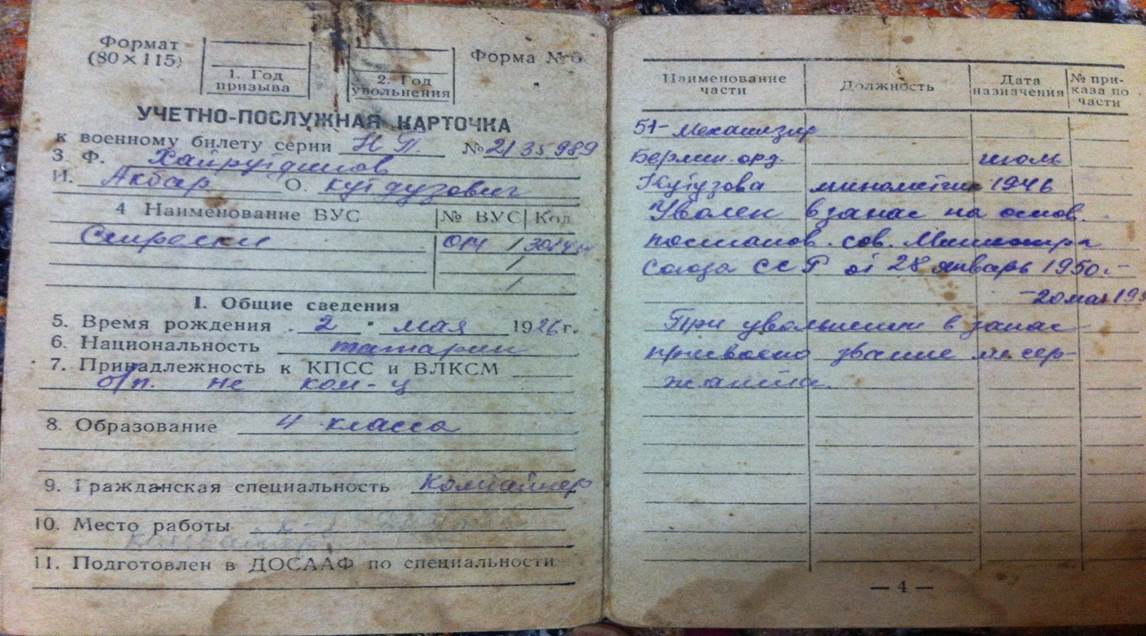 Формат
(80×115)
1. Год
призыва
2. Год
увольнения
Форма № 6
УЧЕТНО-ПОСЛУЖНАЯ КАРТОЧКА
к военному билету серии НП № 2135989
3. Ф. Хайрутдинов
И. Акбар О. Кутдузович
4 Наименование ВУС № ВУС Код
Стрелки
I. Общие сведения
5. Время рождения 2 мая 1926 г.
6. Национальность татарин
7. Принадлежность к КПСС и ВЛКСМ
б/п. не ком-ц
8. Образование 4 класса
9. Гражданская специальность Комбайнер
10. Место работы
11. Подготовлен в ДОСААФ по специальности
Наименование
части
Должность
Дата
назначения
№ при-
каза по
части
51-Механизир
Берлин. орд. июль
Кутузова минометчик 1946
Уволен в запас на основ.
постанов. сов. Министра
Союза ССР от 28 январь 1950 г.
20 мая
При увольнении в запас
присвоено звание мл. сер-
жанта.
— 4 —